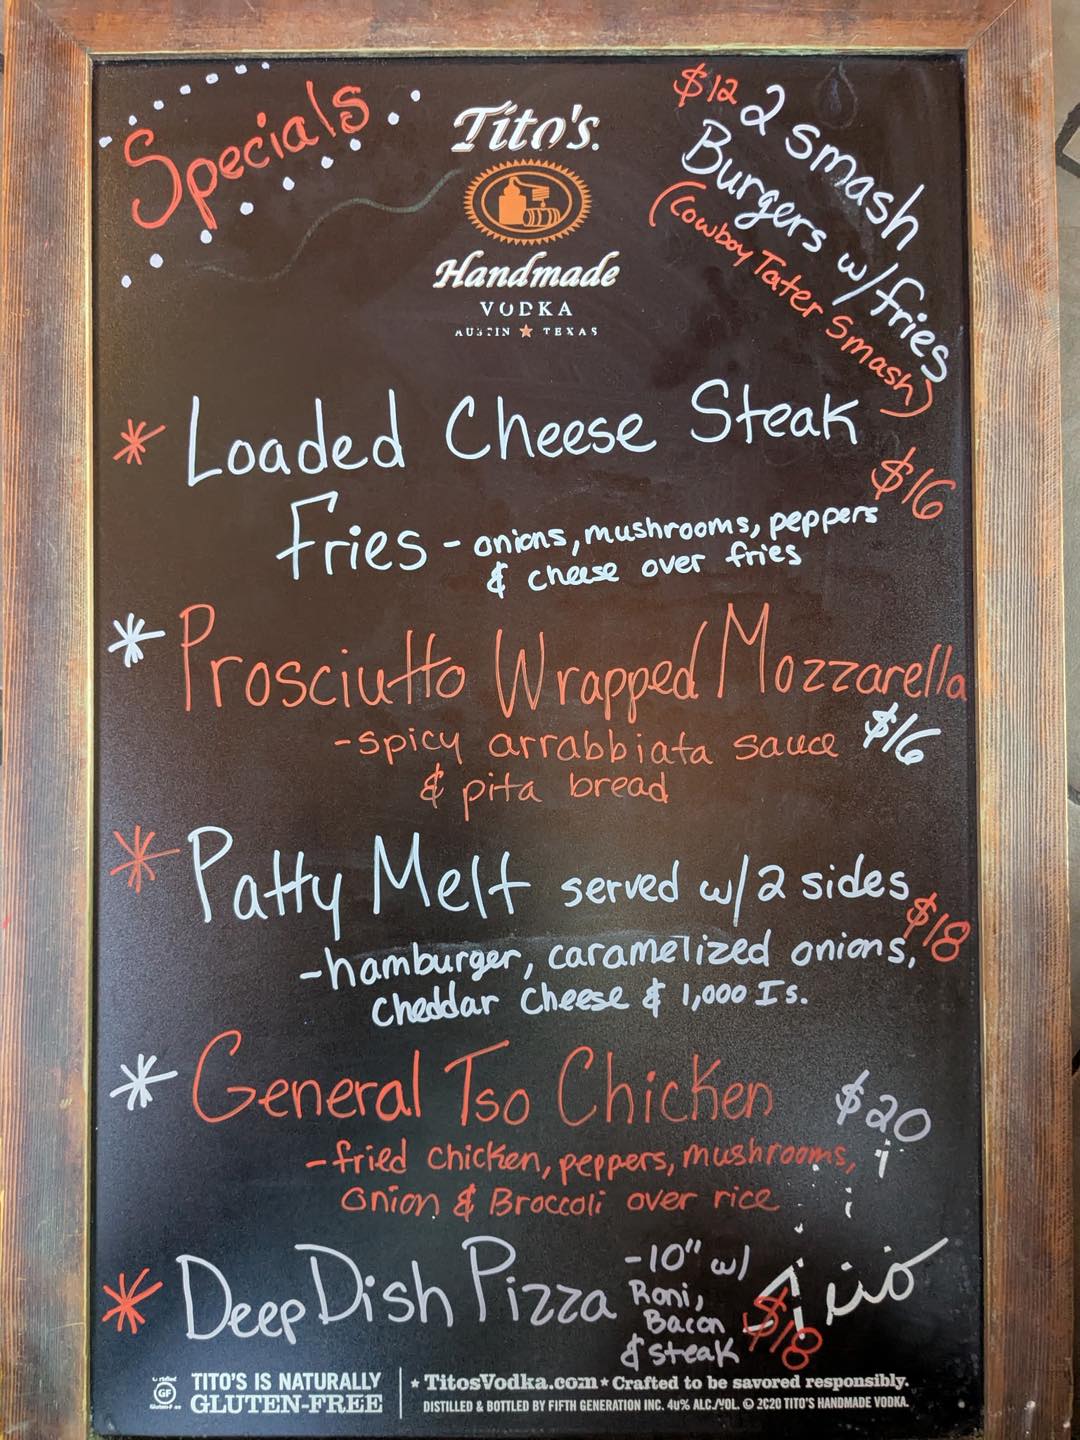 Specials
Tito's.
Handmade
VODKA
AUSTIN ★ TEXAS
$12 2 smash
Burgers w/fries
(Cowboy Tater Smash)
* Loaded Cheese Steak
$16
Fries - onions, mushrooms, peppers
& cheese over fries
* Prosciutto Wrapped Mozzarella
-spicy arrabbiata sauce $16
& pita bread
* Patty Melt served w/2 sides
$18
-hamburger, caramelized onions,
Cheddar Cheese & 1,000 Is.
* General Tso Chicken $20
-fried chicken, peppers, mushrooms,
onion & Broccoli over rice
* Deep Dish Pizza -10" w/
Roni,
Bacon
& steak
$18
Tito
GF
TITO'S IS NATURALLY
GLUTEN-FREE
★ TitosVodka.com ★ Crafted to be savored responsibly.
DISTILLED & BOTTLED BY FIFTH GENERATION INC. 40% ALC./VOL. © 2020 TITO'S HANDMADE VODKA.